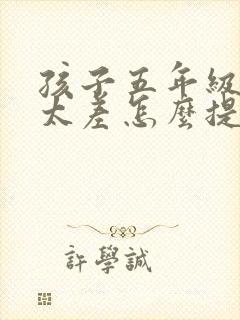 孩子五年級
太差怎麼提
許學誠